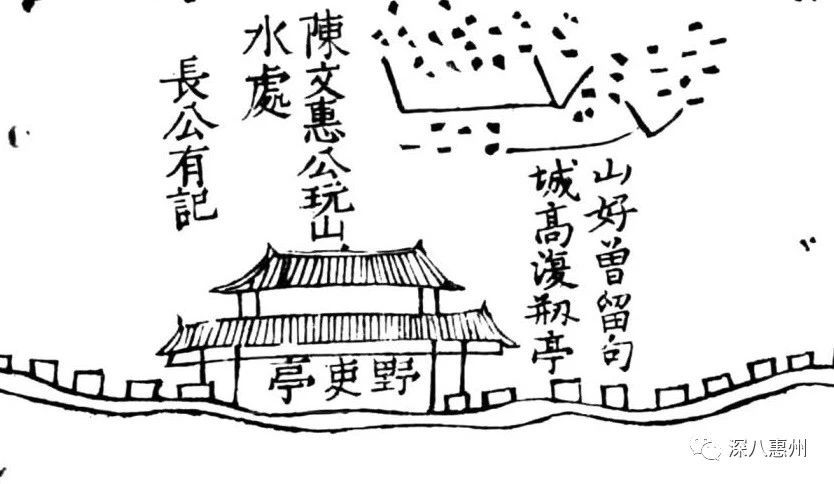 山好曾留句
城高復剏亭
陳文惠公玩山
水處
長公有記
野吏亭
深八惠州